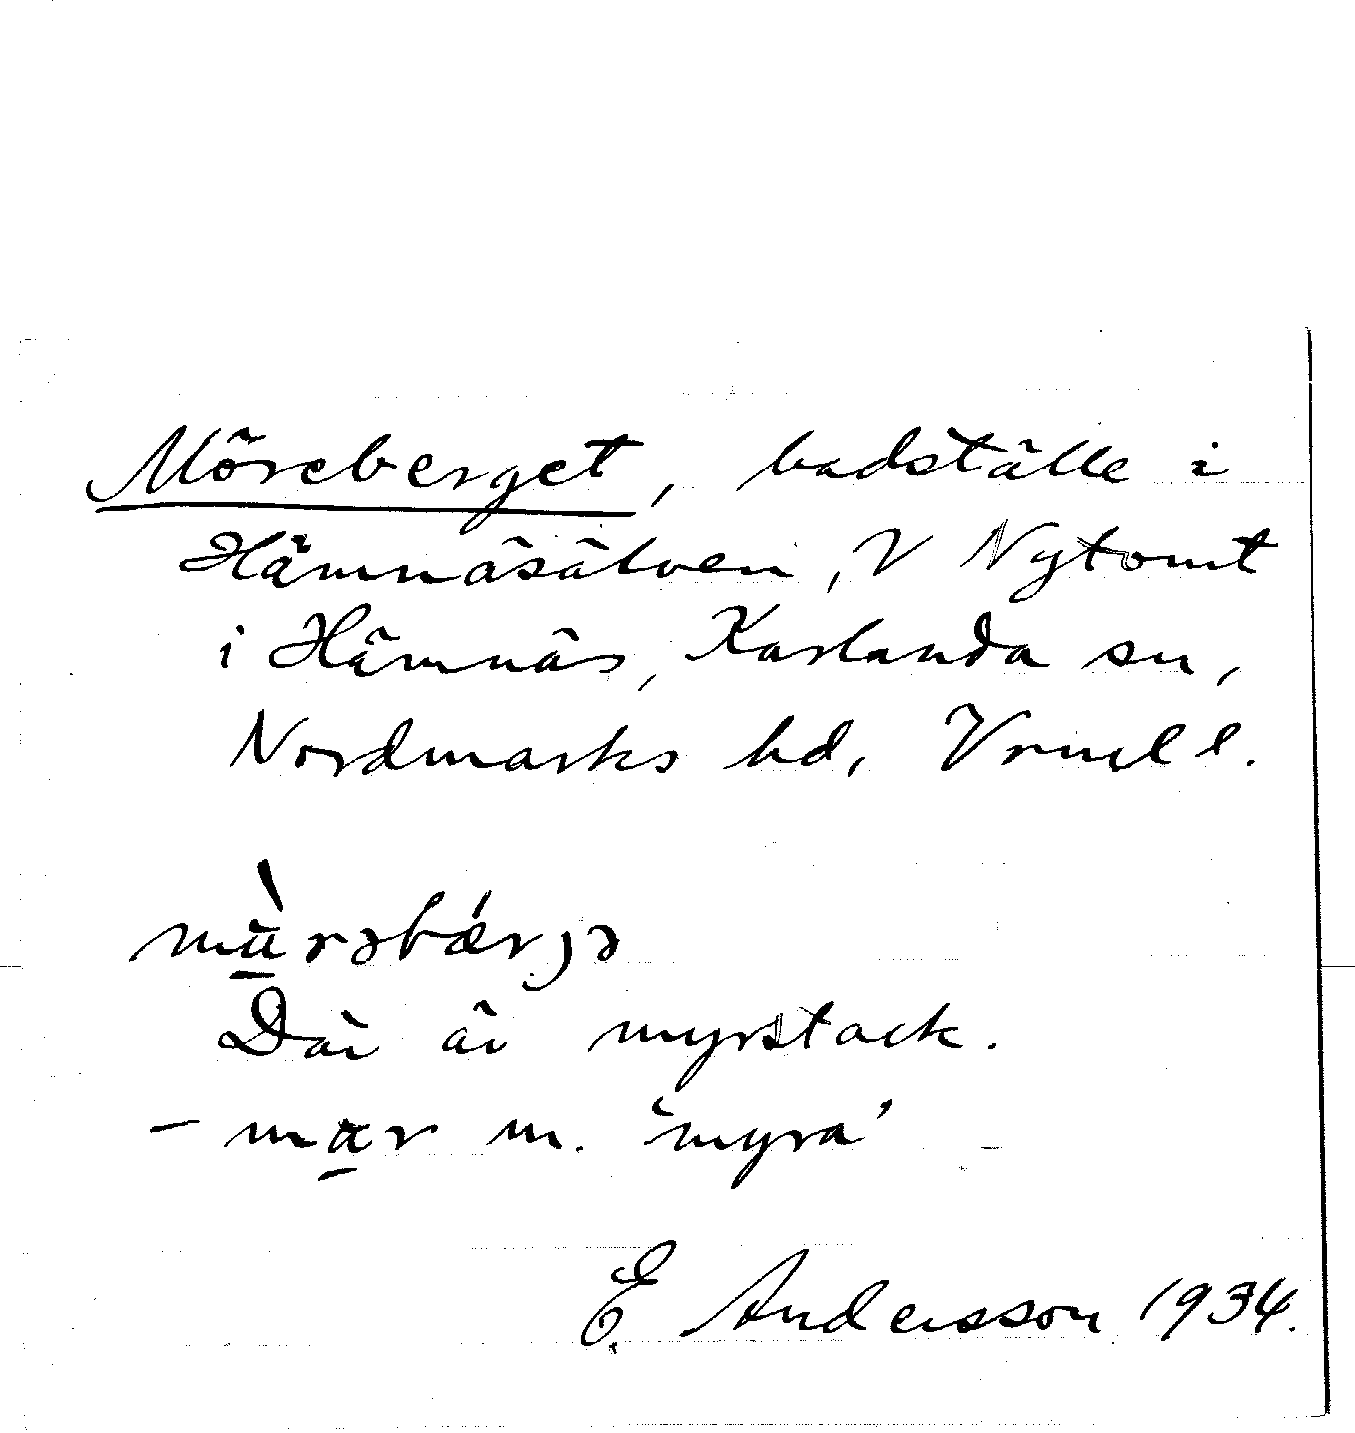 Möreberget, badställe i
Hämnäsälven, V Nytomt
i Hämnäs, Karlanda sn,
Nordmarks hd, Vrml l.
Där är myrstack.
m. 'myra'
E. Andersson 1934.